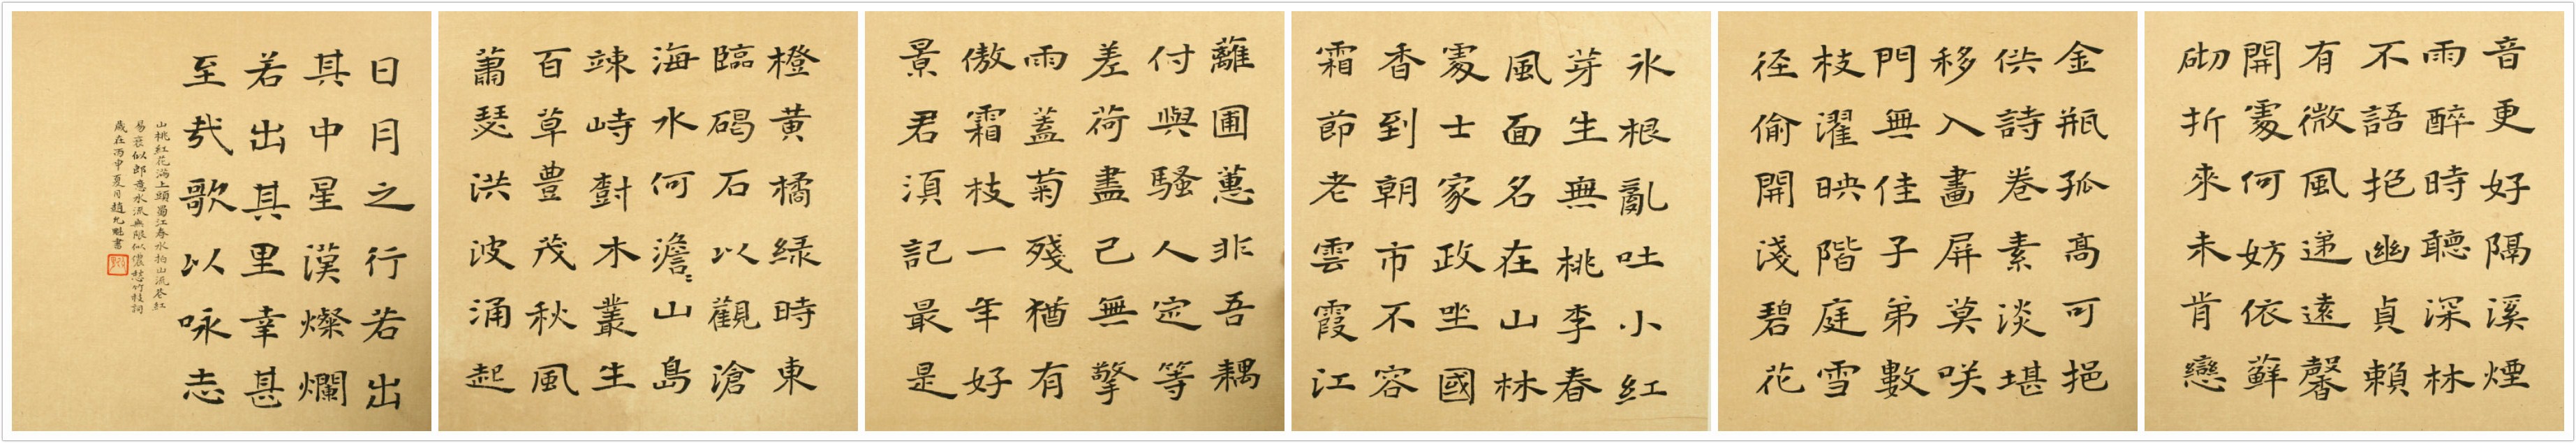 音更好隔溪煙
雨醉時聽深林
不語抱幽貞賴
有微風递遠馨
開處何妨依蘚
砌折來未肯戀
金瓶孤高可挹
供詩卷素淡堪
移入畫屏莫咲
門無佳子弟數
枝濯映階庭雪
径偷開淺碧花
氷根亂吐小紅
芽生無桃李春
風面名在山林
處士家政坐國
香到朝市不容
霜節老雲霞江
蘺圃蕙非吾耦
付與騷人定等
差荷盡已無擎
雨蓋菊殘猶有
傲霜枝一年好
景君須記最是
橙黃橘緑時東
臨碣石以觀滄
海水何澹〻山島
竦峙樹木叢生
百草豊茂秋風
蕭瑟洪波涌起
日月之行若出
其中星漢燦爛
若出其里幸甚
至哉歌以咏志
山桃紅花滿上頭蜀江春水拍山流花紅
易衰似郎意水流無限似儂愁竹枝詞
歲在丙申夏月趙書